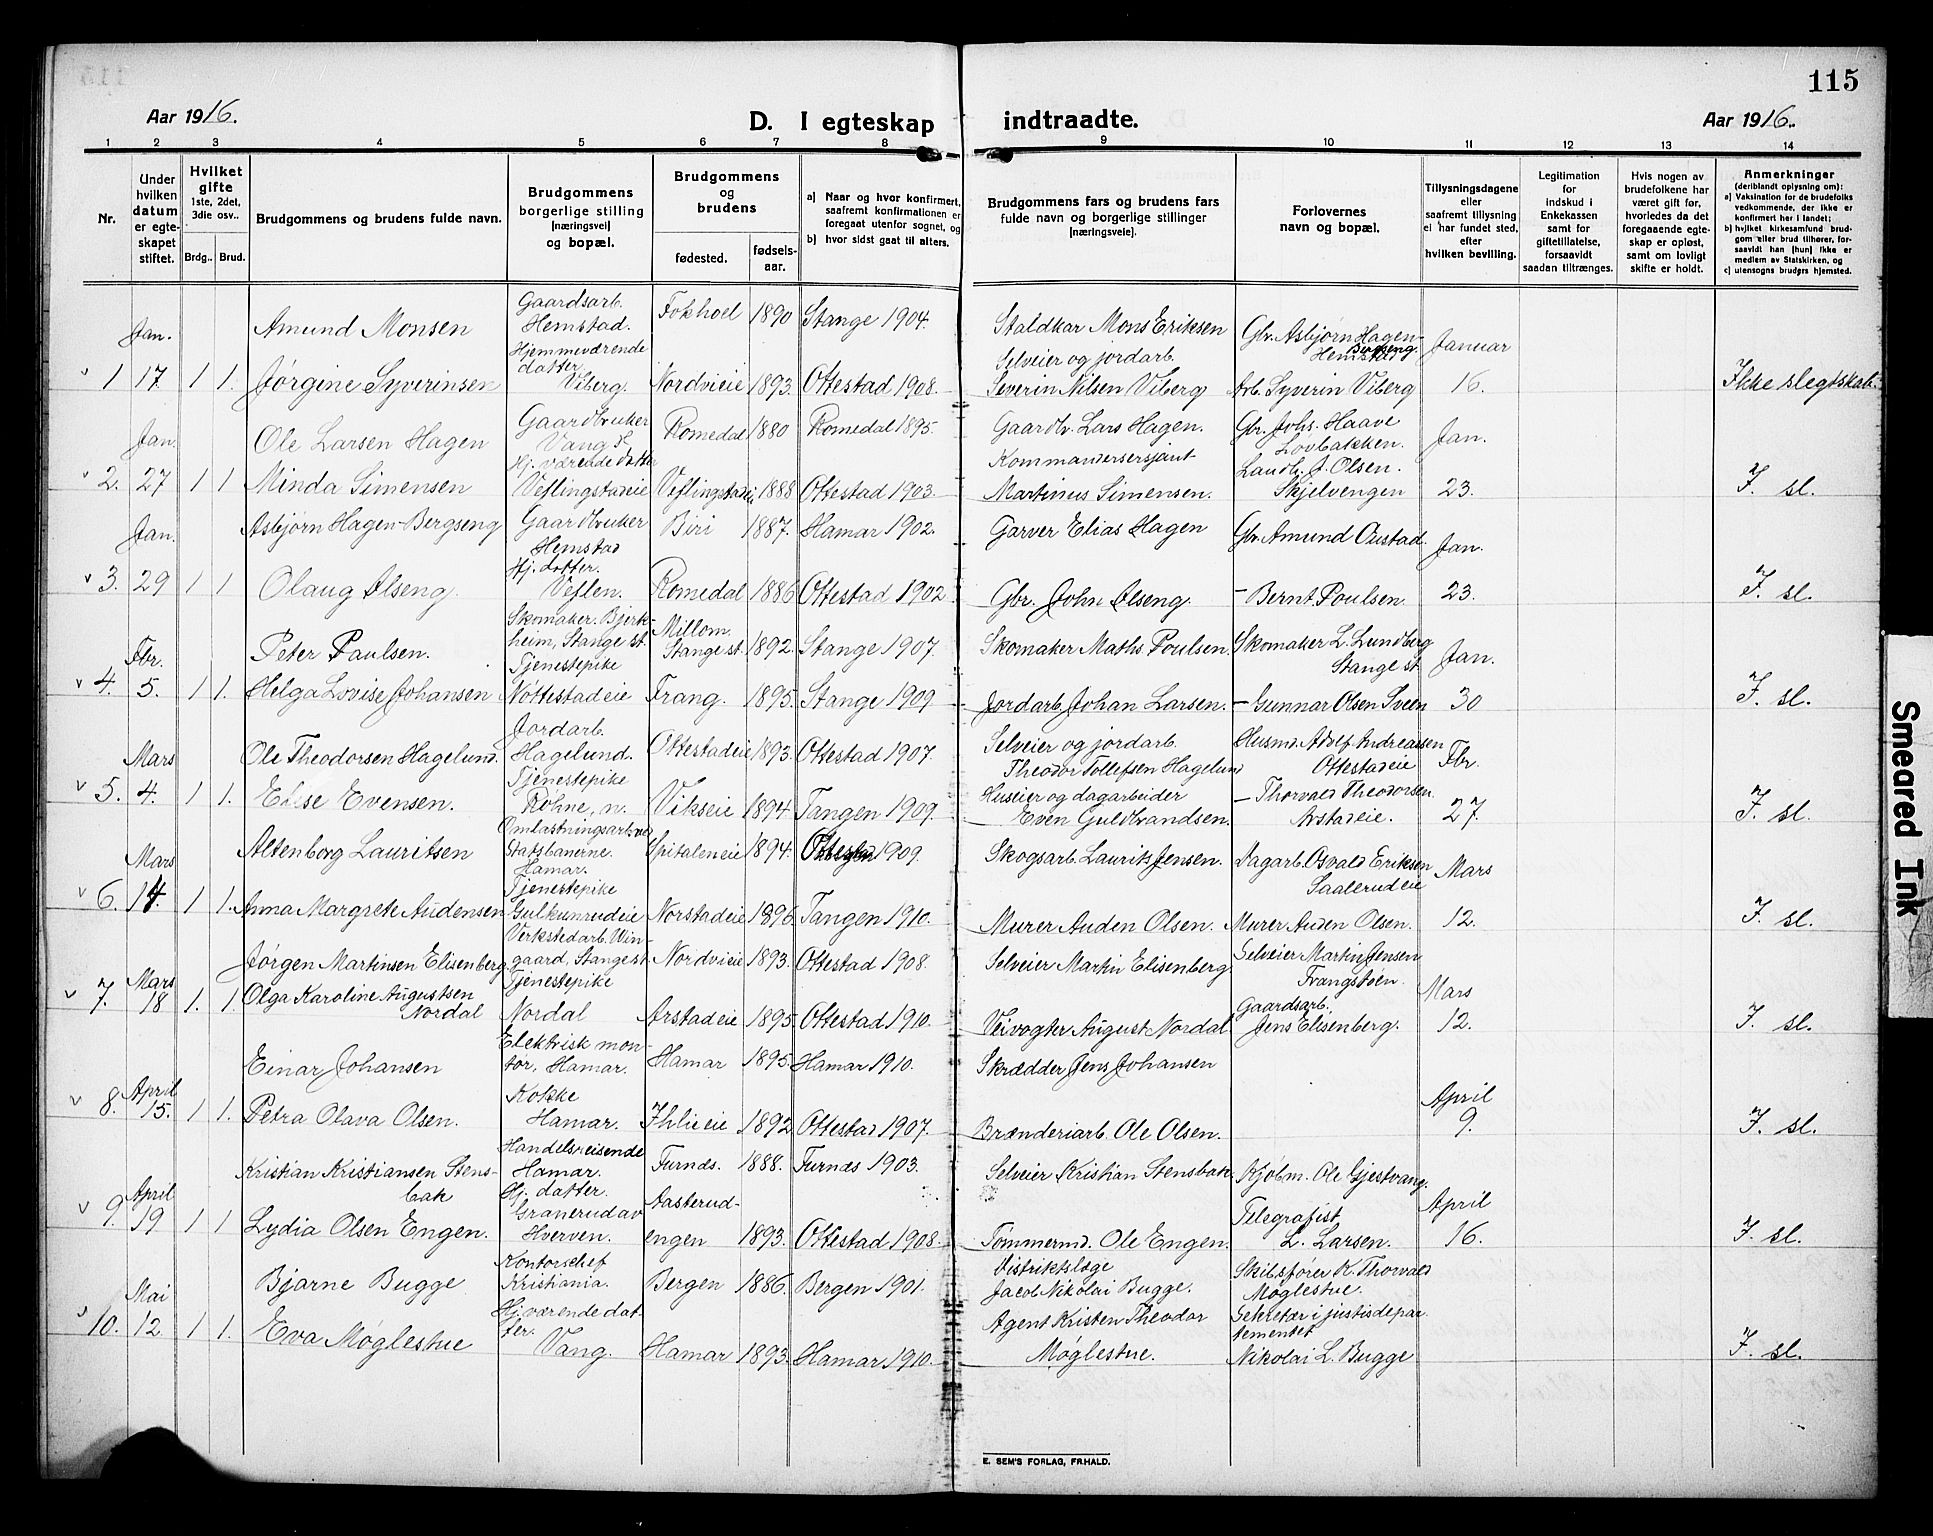 115
Aar 1916.
D. I egteskap indtraadte.
Aar 1916.
1 2 3 4 5 6 7 8 9 10 11 12 13 14
Nr.
Under hvilken datum er egte-skapet stiftet.
Hvilket gifte 1ste, 2det, 3die osv..
Brdg.. Brud.
Brudgommens og brudens fulde navn.
Brudgommens borgerlige stilling [næringsvei] og bopæl.
Brudgommens og brudens
fødested. fødsels-aar.
a) Naar og hvor konfirmert, saafremt konfirmationen er foregaat utenfor sognet, og
b) hvor sidst gaat til alters.
Brudgommens fars og brudens fars fulde navn og borgerlige stillinger [næringsveie].
Forlovernes navn og bopæl.
Tillysningsdagene eller saafremt tillysning ei har fundet sted, efter hvilken bevilling.
Legitimation for indskud i Enkekassen samt for giftetillatelse, forsaavidt saadan tiltrænges.
Hvis nogen av brudefolkene har været gift før, hvorledes da det foregaaende egte-skap er opløst, samt om lovligt skifte er holdt.
Anmerkninger (deriblandt oplysning om): a) Vaksination for de brudefolks vedkommende, der ikke er konfirmert her i landet; b) hvilket kirkesamfund brud-gom eller brud tilhører, for-saavidt han [hun] ikke er medlem av Statskirken, og c) utensogns brudgs hjemsted.
Jan. Amund Monsen Gaardsarb. Hemstad. Fokhoel 1890 Stange 1904. Staldkar Mons Eriksen Gbr. Asbjørn Hagen-Bergseng Hemstad Januar
1 17 1 1. Jørgine Syverinsen Hjemmeværende datter. Viberg. Nordvieie 1893. Ottestad 1908. Selveier og jordarb. Severin Nilsen Viberg Arb. Syverin Viberg 16. Ikke slegtskab.
Jan. Ole Larsen Hagen Gaardbruker Vang s. Romedal 1880 Romedal 1895. Gaardbr. Lars Hagen. Gbr. Johs. Haave Løvbakken. Jan.
2. 27 1 1 Minda Simensen Hj. værende datter Veflingstadeie Veflingstadeie 1888 Ottestad 1903. Kommandersersjant Martinus Simensen. Landh. J. Olsen. Skjelvengen 23. I. sl.
Jan. Asbjørn Hagen-Bergseng Gaardbruker Hemstad Biri 1887. Hamar 1902. Garver Elias Hagen Gbr. Amund Oustad. Jan.
3. 29 1 1 Olaug Ilseng. Hj. datter. Veflen. Romedal 1886 Ottestad 1902. Gbr. John Ilseng. - Bernt Poulsen. 23. I. sl.
Fbr. Peter Paulsen. Skomaker. Bjerk-heim, Stange st. Millom. Stange st. 1892. Stange 1907. Skomaker Maths. Poulsen. Skomaker L. Lundberg Stange st. Jan.
4. 5. 1 1. Helga Lovise Johansen Tjenestepike Nøttestadeie Frang. 1895. Stange 1909. Jordarb. Johan Larsen. - Gunnar Olsen Sveen 30 I. sl.
Mars Ole Theodorsen Hagelund. Jordarb. Hagelund. Ottestadeie 1893. Ottestad 1907. Selveier og jordarb. Theodor Tollefsen Hagelund Husmd. Adolf Andreassen Ottestadeie Fbr.
5. 4. 1 1. Else Evensen. Tjenestepike Røhne, n. Vikseie 1894. Tangen 1909. Huseier og dagarbeider Even Guldbrandsen. - Thorvald Theodorsen Arstadeie. 27. I. sl.
Mars Altenborg Lauritsen Omlastningsarb. ved Statsbanerne. Hamar. Spitaleneie 1894. 1909. Skogsarb. Laurits Jensen. Dagarb. Osvald Eriksen Saalerudeie Mars
6. 14. 1 1. Anna Margrete Audensen Tjenestepike Gulkunrudeie Norstadeie 1896 Tangen 1910. Murer Auden Olsen. Murer Auden Olsen. 12. I. sl.
Jørgen Martinsen Elisenberg. Verkstedarb. Win-gaard, Stange st. Nordvieie 1893. Ottestad 1908. Selveier Martin Elisenberg. Selveier Martin Jensen Frangstøen.
7. Mars 18 1. 1. Olga Karoline Augustsen Nordal Tjenestepike Nordal Arstadeie 1895. Ottestad 1910. Veivogter August Nordal Gaardsarb. Jens Elisenberg. Mars 12. I. sl.
Einar Johansen Elektrisk mon-tør, Hamar. Hamar 1895. Hamar 1910. Skrædder Jens Johansen
8. April 15. 1 1. Petra Olava Olsen. Kokke Hamar. Ihlieie 1892 Ottestad 1907. Brænderiarb. Ole Olsen. April 9. I. sl.
Kristian Kristiansen Stens-bak Handelsreisende Hamar. Furnes. 1888. Furnæs 1903. Selveier Kristian Stensbak Kjøbm. Ole Gjestvang.
9. April 19 1 1 Lydia Olsen Engen. Hj. datter. Granerud av Hverven. Aasterud-engen 1893. Ottestad 1908. Tømmermd. Ole Engen. Telegrafist L. Larsen. April 16. I. sl.
Bjarne Bugge Kontorschef Kristiania. Bergen 1886. Bergen 1901. Distriktslæge Jacob Nikolai Bugge. Skibsfører K. Thorvald Møglestue.
10. Mai 12 1 1. Eva Møglestue Hj. værende dat-ter. Vang. Hamar 1893. Hamar 1910. Agent Kristen Theodor Møglestue. Sekretær i justisdepar-tementet Nikolai L. Bugge I. sl.
E. SEM'S FORLAG, FR.HALD.
Smeared Ink